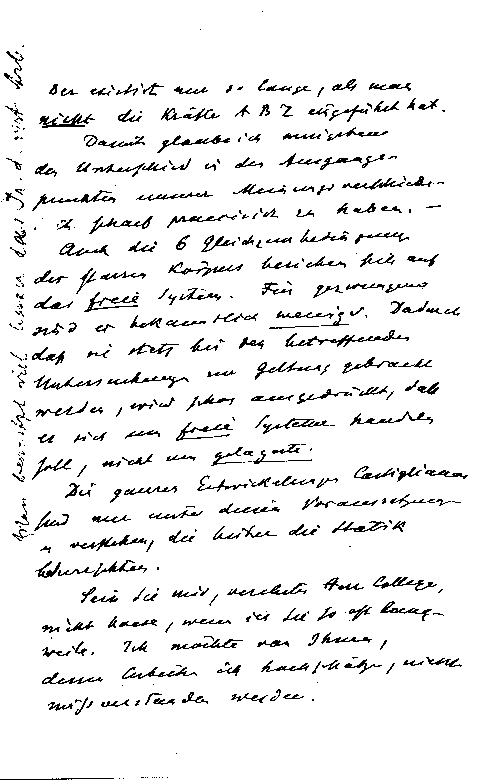 Der existirt nur so lange, als man
nicht die Kräfte A B Z eingeführt hat.
Damit glaube ich
den Unterschied in den Ausgangs-
punkten unserer Meinungsverschieden-
scharf praecisirt zu haben. —
Auch die 6 Gleichgewichtsbedingungen
der starren Körper beziehen sich auf
das freie System. Für gezwungene
sind es bekanntlich weniger. Dadurch
daß sie stets bei den betreffenden
Untersuchungen zur Geltung gebracht
werden, wird schon ausgedrückt, daß
es sich um freie Systeme handeln
soll, nicht um gelagerte.
Die ganzen Entwickelungen Castiglianos
sind nur unter diesen Voraussetzungen
zu verstehen, die bisher die Statik
beherrschten.
Sein Sie mir, verehrter Herr College,
nicht boese, wenn ich Sie so oft lang-
weile. Ich möchte von Ihnen,
dessen Arbeiten ich hochschätze, nicht
mißverstanden werden.